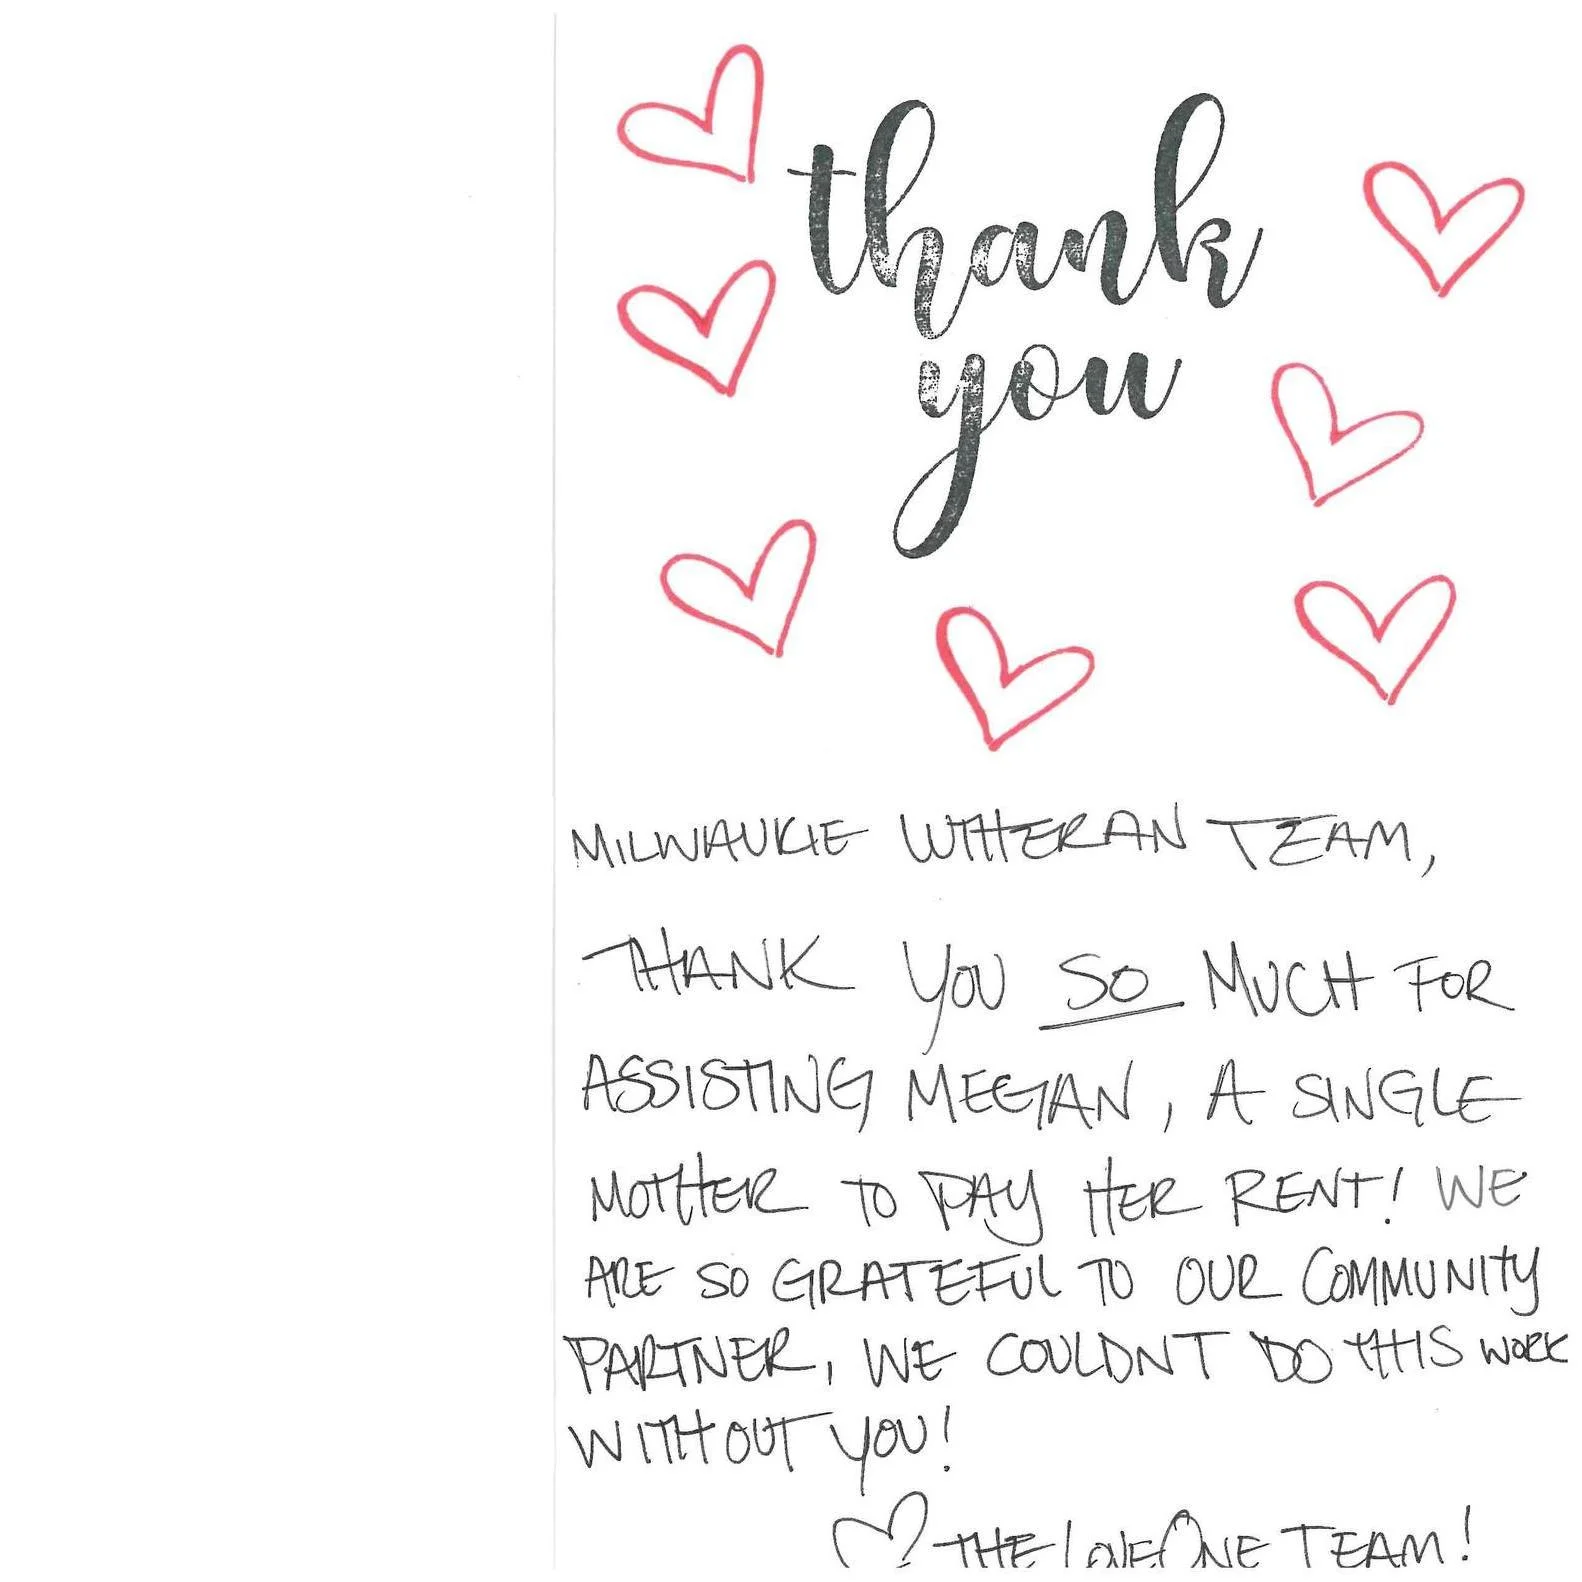 thank
you
MILWAUKIE LUTHERAN TEAM,
THANK YOU SO MUCH FOR
ASSISTING MEGAN, A SINGLE
MOTHER TO PAY HER RENT! WE
ARE SO GRATEFUL TO OUR COMMUNITY
PARTNER, WE COULDNT DO THIS WORK
WITHOUT YOU!
THE LOVEONE TEAM!